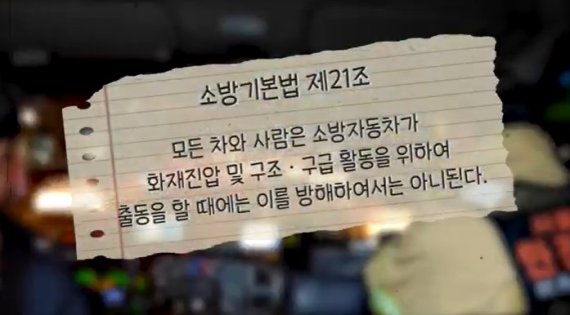 소방기본법 제21조
모든 차와 사람은 소방자동차가
화재진압 및 구조·구급 활동을 위하여
출동을 할 때에는 이를 방해하여서는 아니된다.